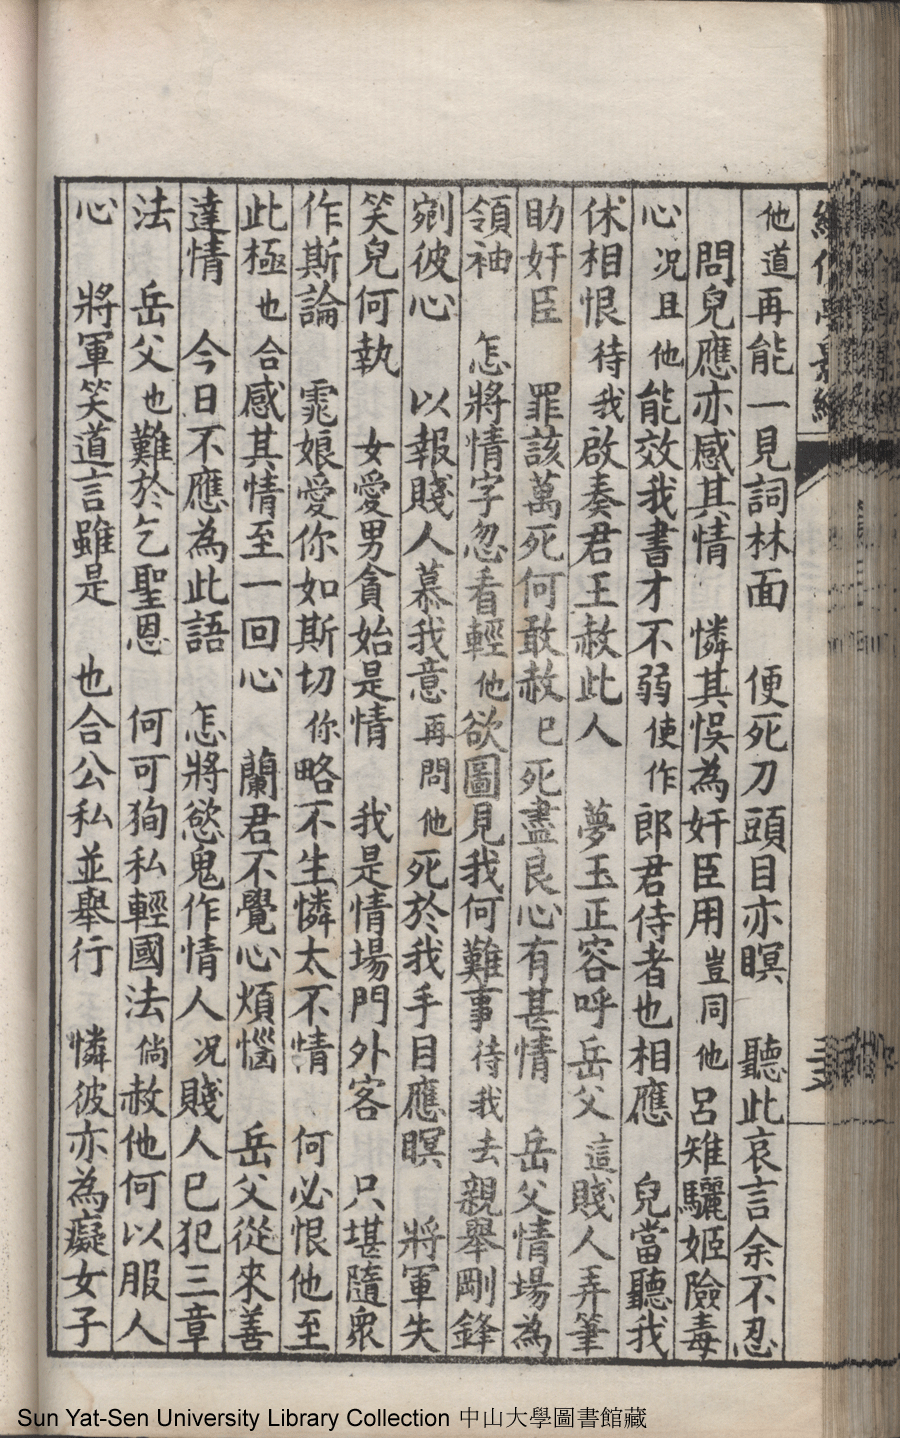 他道再能一見詞林面　便死刀頭目亦瞑　聽此哀言余不忍
問兒應亦感其情　憐其悞為奸臣用豈同他呂雉驪姬險毒
心况且他能效我書才不弱使作郎君侍者也相應　兒當聽我
休相恨待我啟奏君王赦此人　夢玉正容呼岳父這賤人弄筆
助奸臣　罪該萬死何敢赦已死盡良心有甚情　岳父情場為
領袖　怎將情字忽看輕他欲圖見我何難事待我去親舉剛鋒
剜彼心　以報賤人慕我意再問他死於我手目應瞑　將軍失
笑兒何執　女愛男貪始是情　我是情場門外客　只堪隨眾
作斯論　霓娘愛你如斯切你略不生憐太不情　何必恨他至
此極也合感其情至一回心　蘭君不覺心煩惱　岳父從來善
達情　今日不應為此語　怎將慾鬼作情人况賤人已犯三章
法　岳父也難於乞聖恩　何可狥私輕國法倘赦他何以服人
心　將軍笑道言雖是　也合公私並舉行　憐彼亦為癡女子
Sun Yat-Sen University Library Collection 中山大學圖書館藏